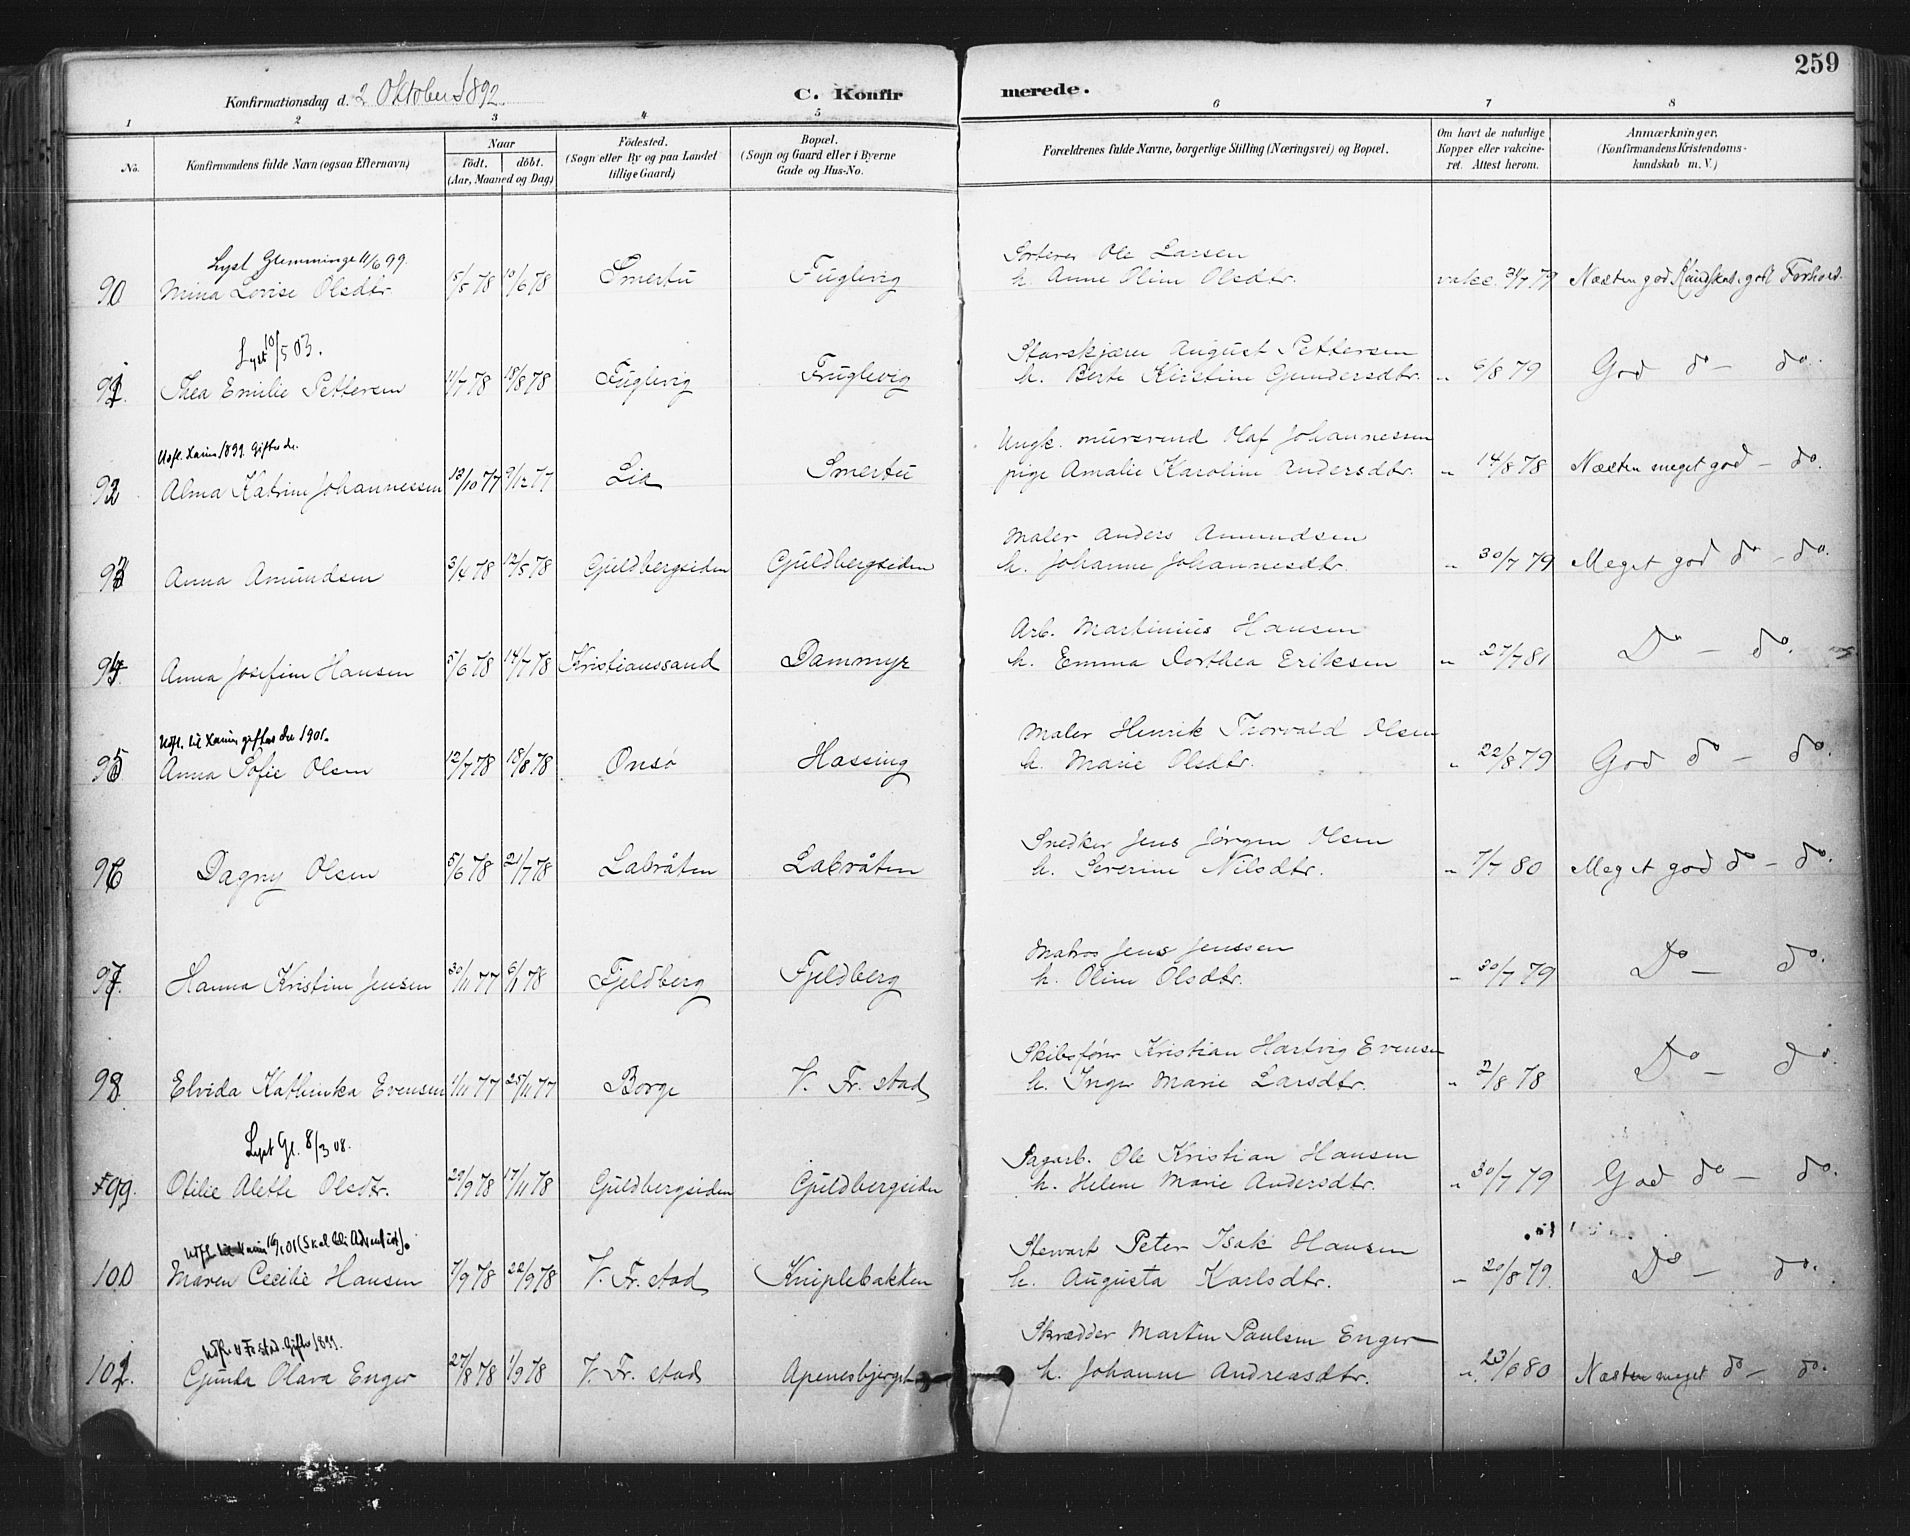 259
Konfirmationsdag d. 2 Oktober 1892.
C. Konfirmerede.
1 2 3 4 5 6 7 8
No.
Konfirmandens fulde Navn (ogsaa Efternavn)
Naar
födt. döbt.
(Aar, Maaned og Dag)
Födested.
(Sogn eller By og paa Landet
tillige Gaard)
Bopæl.
(Sogn og Gaard eller i Byerne
Gade og Hus-No.
Forældrenes fulde Navne, borgerlige Stilling (Næringsvei) og Bopæl.
Om havt de naturlige
Kopper eller vakcine-
ret. Attest herom.
Anmærkninger.
(Konfirmandens Kristendoms-
kundskab m. V.)
Lyst Glemminge 11/6 99.
90 Mina Lovise Olsdtr 15/5 78 10/6 78 Smertu Fuglevig
Sorterer Ole Larsen
h. Anne Oline Olsdtr. vakc. 31/7 79 Næsten god Kundskab, godt Forhold.
Lyst 10/5 03.
91. Thea Emilie Pettersen 11/7 78 18/8 78 Fuglevig Fruglevig
Storskjærer August Pettersen
h. Berte Kirstine Gundersdtr. " 6/8 79 God do - do.
Udfl. Xania 1899. Giftes der.
92 Alma Katrine Johannessen 13/10 77 9/12 77 Lia Smertu
Ungk. mursvend Olaf Johannessen
pige Amalie Karoline Andersdtr. " 14/8 78 Næsten meget god - do.
93 Anna Amundsen 3/4 78 12/5 78 Guldbergsiden Guldbergsiden
Maler Anders Amundsen
h. Johanne Johannesdtr. " 30/7 79 Meget god do - do.
94. Anna Josefine Hansen 5/6 78 14/7 78 Kristianssand Dammyr
Arb. Martinius Hansen
h. Emma Dorthea Eriksen " 27/7 81 Do - do.
Udfl. til Xania giftes der 1901.
95 Anna Sofie Olsen 12/7 78 18/8 78 Onsø Hassing
Maler Henrik Thorvald Olsen
h. Marie Olsdtr. " 22/8 79 God do - do.
96 Dagny Olsen 5/6 78 21/7 78 Labråten Labråten
Snedker Jens Jørgen Olsen
h. Severine Nilsdtr. " 7/7 80 Meget god do - do.
97. Hanna Kristine Jensen 30/11 77 6/1 78 Fjeldberg Fjeldberg
Matros Jens Jenssen
h. Oline Olsdtr. " 30/7 79 Do - do.
98. Elvida Kathinka Evensen 1/11 77 25/11 77 Borge V. Fr. stad
Skibsfører Kristian Hartvig Evensen
h. Inger Marie Larsdtr. " 2/8 78 Do do.
Lyst Gl. 8/3 08.
99. Otilie Alette Olsdtr. 29/9 78 17/11 78 Guldbergsiden Guldbergsiden
Sagarb. Ole Kristian Hansen
h. Helene Marie Andersdtr. " 30/7 79 God do - do.
Udfl til Xania 16/1 01 (Skal bli Adventist).
100 Maren Cecilie Hansen 7/9 78 22/9 78 V. Fr. stad Kniplebakken
Stewart Peter Isak Hansen
h. Augusta Karlsdtr. " 20/8 79. Do - do.
Udfl. V. Fr stad. Giftes 1899.
101. Gunda Olava Enger 27/8 78 1/9 78 V. Fr. stad Apenesbjerget
Skrædder Martin Paulsen Enger
h. Johanne Andreasdtr. " 23/6 80 Næsten meget do - do.